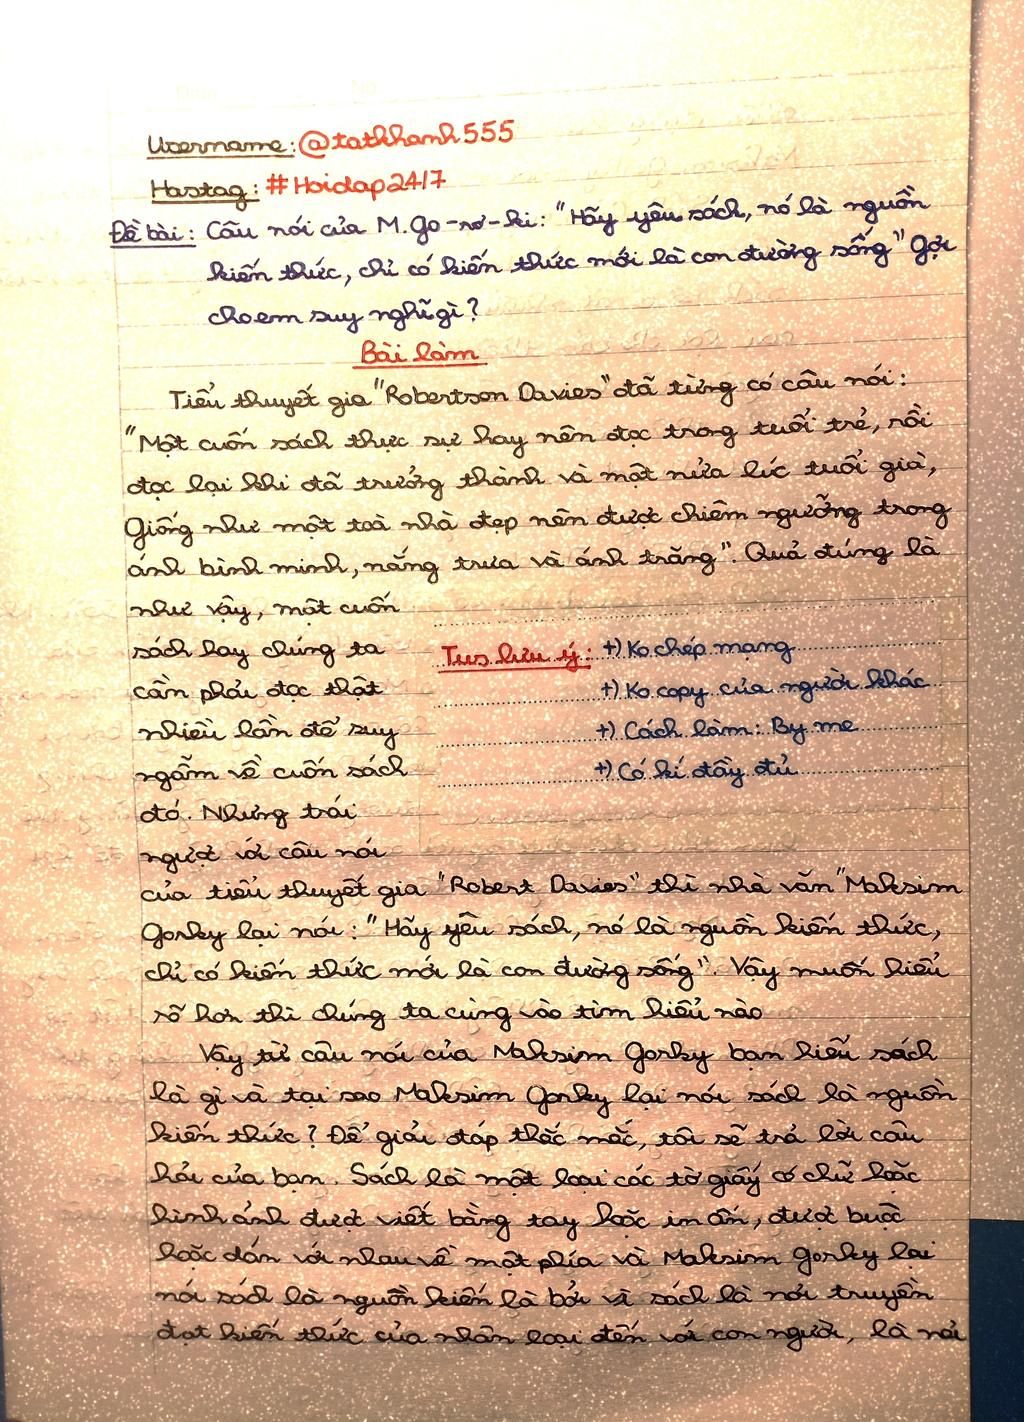 Username: @tatkhanh555
Hastag: #Hoidap247
Đề bài: Câu nói của M.Go-rơ-ki: "Hãy yêu sách, nó là nguồn
kiến thức, chỉ có kiến thức mới là con đường sống" Gợi
cho em suy nghĩ gì?
Bài làm
Tiểu thuyết gia "Robertson Davies" đã từng có câu nói:
"Một cuốn sách thực sự hay nên đọc trong tuổi trẻ, rồi
đọc lại khi đã trưởng thành và một nửa lúc tuổi già,
Giống như một toà nhà đẹp nên được chiêm ngưỡng trong
ánh bình minh, nắng trưa và ánh trăng". Quả đúng là
như vậy, một cuốn
sách hay chúng ta
cần phải đọc thật
nhiều lần để suy
ngẫm về cuốn sách
đó. Nhưng trái
ngược với câu nói
Tus lưu ý: +) Ko chép mạng
+) Ko copy của người khác
+) Cách làm: By me
+) Có kí đầy đủ
của tiểu thuyết gia "Robert Davies" thì nhà văn "Maksim
Gorky lại nói: "Hãy yêu sách, nó là nguồn kiến thức,
chỉ có kiến thức mới là con đường sống". Vậy muốn hiểu
rõ hơn thì chúng ta cùng vào tìm hiểu nào
Vậy từ câu nói của Maksim Gorky bạn hiểu sách
là gì và tại sao Maksim Gorky lại nói sách là nguồn
kiến thức? Để giải đáp thắc mắc, tôi sẽ trả lời câu
hỏi của bạn. Sách là một loại các tờ giấy có chữ hoặc
hình ảnh được viết bằng tay hoặc in ấn, được buộc
hoặc dán với nhau về một phía và Maksim Gorky lại
nói sách là nguồn kiến là bởi vì sách là nơi truyền
đạt kiến thức của nhân loại đến với con người, là nơi